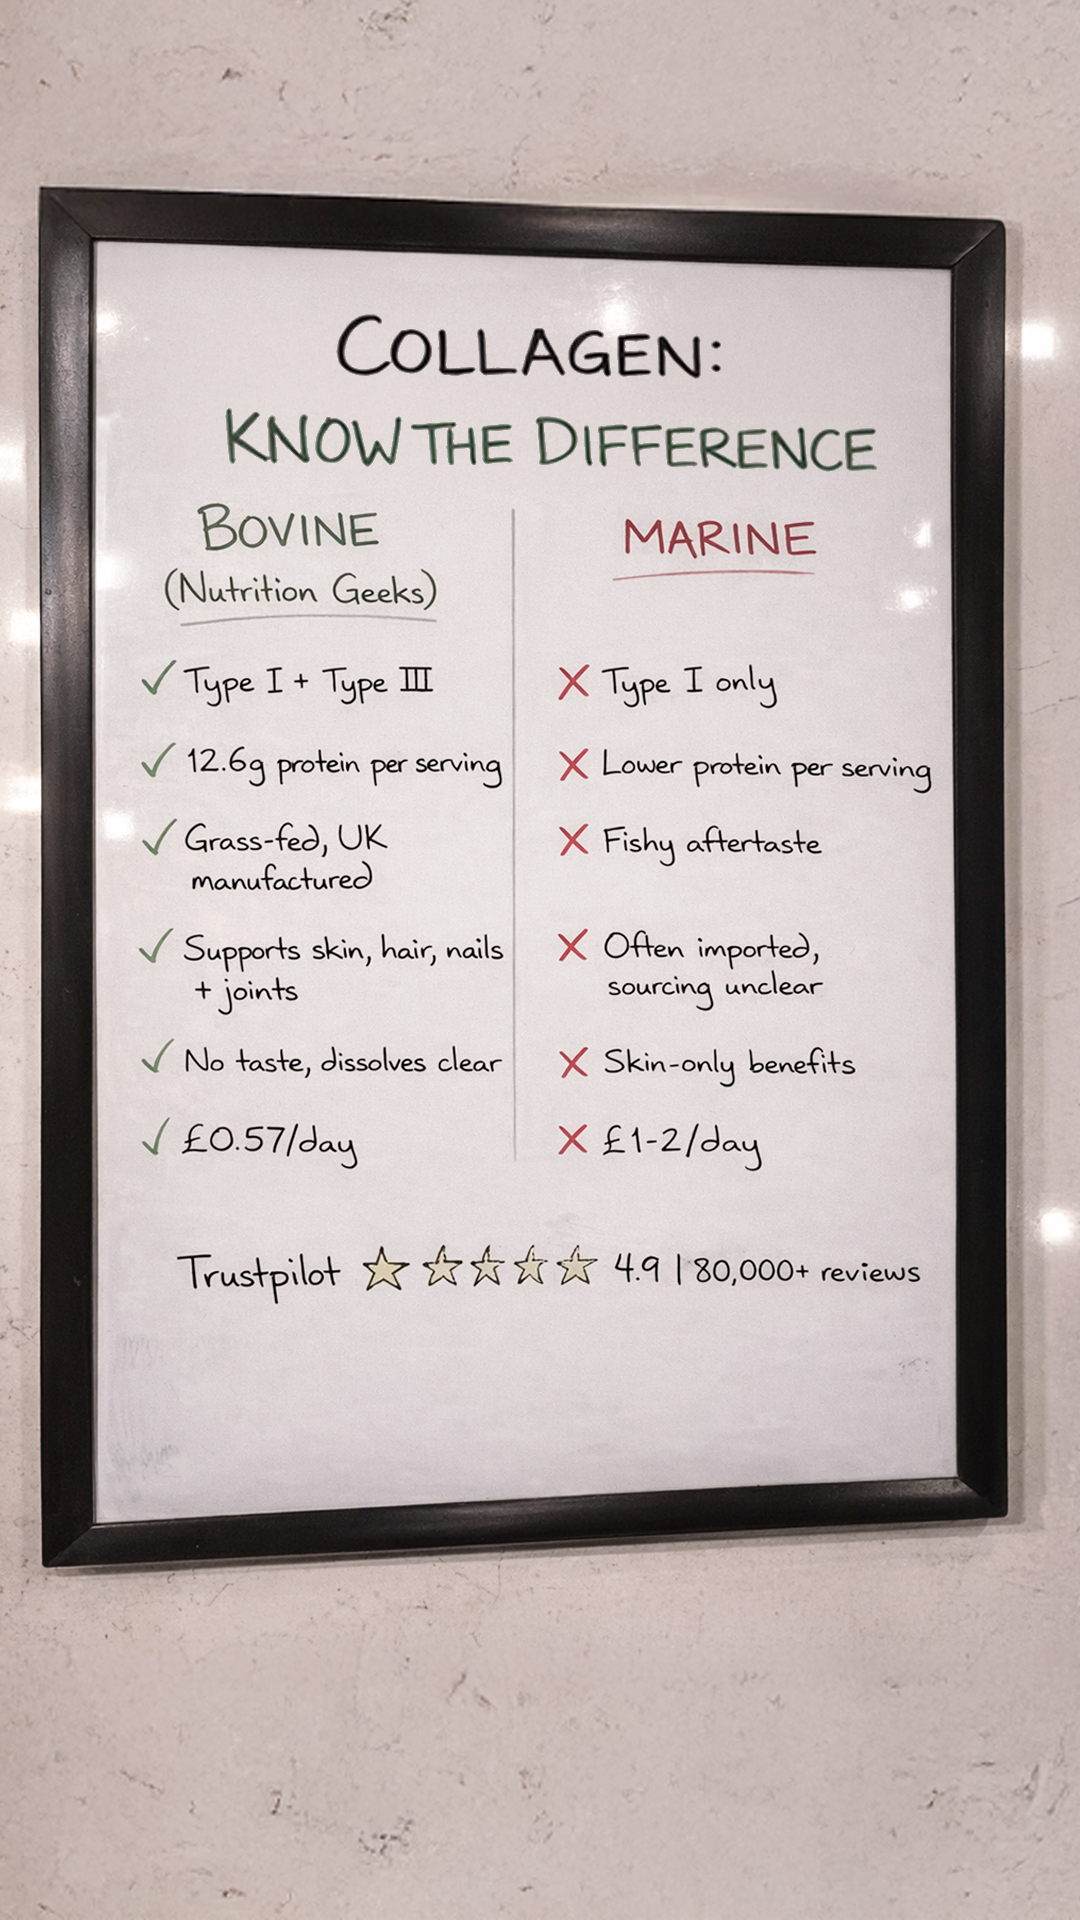 COLLAGEN:
KNOW THE DIFFERENCE
BOVINE
(Nutrition Geeks)
✓ Type I + Type III
✓ 12.6g protein per serving
✓ Grass-fed, UK
manufactured
✓ Supports skin, hair, nails
+ joints
✓ No taste, dissolves clear
✓ £0.57/day
MARINE
✗ Type I only
✗ Lower protein per serving
✗ Fishy aftertaste
✗ Often imported,
sourcing unclear
✗ Skin-only benefits
✗ £1-2/day
Trustpilot ☆☆☆☆☆ 4.9 | 80,000+ reviews